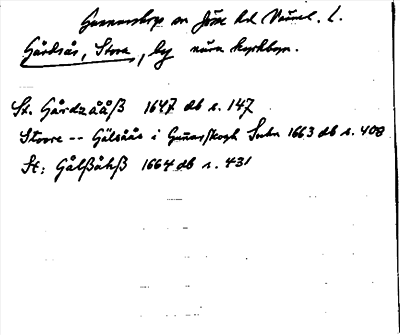 Gunnarskogs sn Jösse hd Värml. l.
Gårdsås, Stora, by nära kyrkbyn.
St. Gårdzååß 1647 db s. 147
Stoore -- Gålsåås i Gunarskogh Sochn 1663 db s. 408
St: Gålßåhß 1664 db s. 431